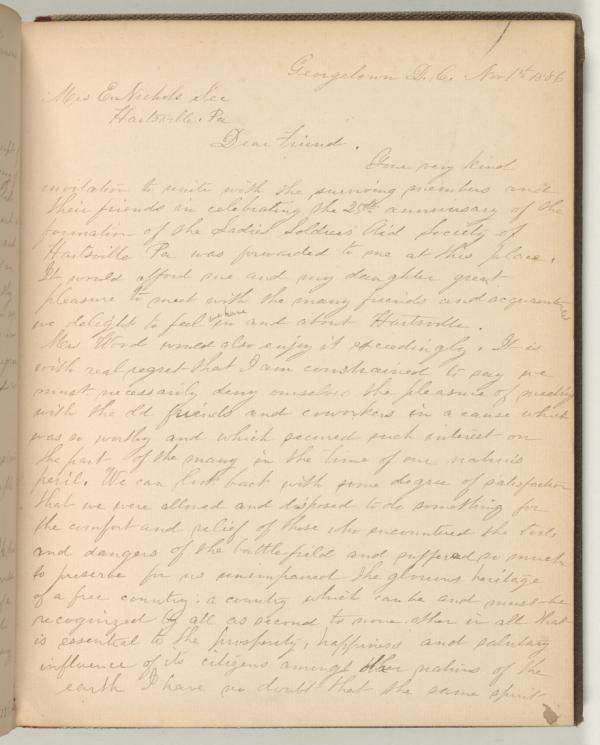 Georgetown D.C. Nov 1st 1886
Mrs E. Nichols Sec
Hartsville. Pa
Dear friend.
Your very kind
invitation to unite with the surviving members and
their friends in celebrating the 25th anniversary of the
formation of the Ladies Soldiers Aid Society of
Hartsville Pa was forwarded to me at this place.
It would afford me and my daughter great
pleasure to meet with the many friends and acquaintances
we delight to feel we have in and about Hartsville.
Mrs Wood would also enjoy it exceedingly. It is
with real regret that I am constrained to say we
must necessarily deny ourselves the pleasure of meeting
with the old friends and coworkers in a cause which
was so worthy and which secured such interest on
the part of the many in the time of our nation's
peril. We can look back with some degree of satisfaction
that we were allowed and disposed to do something for
the comfort and relief of those who encountered the toils
and dangers of the battlefield and suffered so much
to preserve for us unimpaired the glorious heritage
of a free country. a country which can be and must be
recognized by all as second to none other in all that
is essential to the prosperity, happiness and salutary
influence of its citizens amongst other nations of the
earth I have no doubt that the same spirit